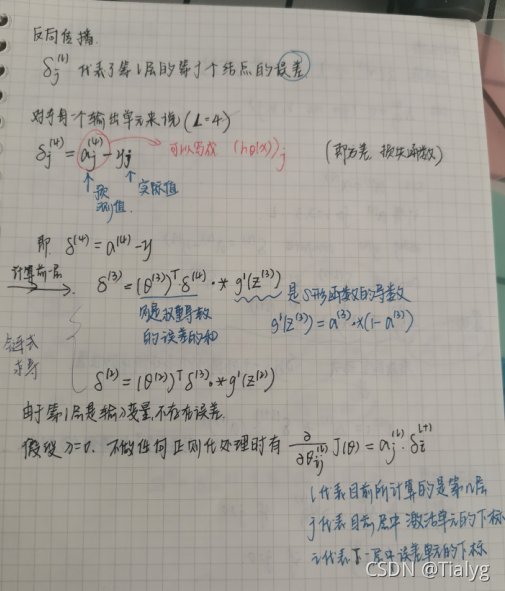 反向传播.
δj^(l) 代表了第l层的第j个结点的误差
对于每一个输出单元来说 (L=4)
δj^(4) = aj^(4) - yj 可以写成 (hθ(x))j (即方差, 损失函数)
预测值. 实际值
即 δ^(4) = a^(4) - y
计算前一层 δ^(3) = (θ^(3))^T·δ^(4) .* g'(z^(3)) 是S形函数的导数
的误差的和 g'(z^(3)) = a^(3) .* (1-a^(3))
链式求导
δ^(2) = (θ^(2))^T δ^(3) .* g'(z^(2))
由于第1层是输入变量, 不存在误差.
假设λ=0, 不做任何正则化处理时有 ∂/∂θij^(l) J(θ) = aj^(l)·δi^(l+1)
l代表目前所计算的是第几层
j代表目前层中激活单元的下标
i代表下一层中误差单元的下标
CSDN @Tialyg